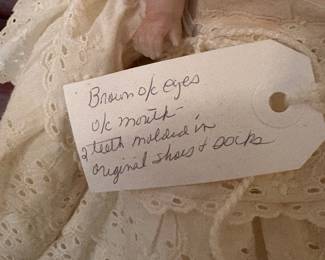 Brown o/c eyes
o/c mouth -
2 teeth molded in
original shoes + socks